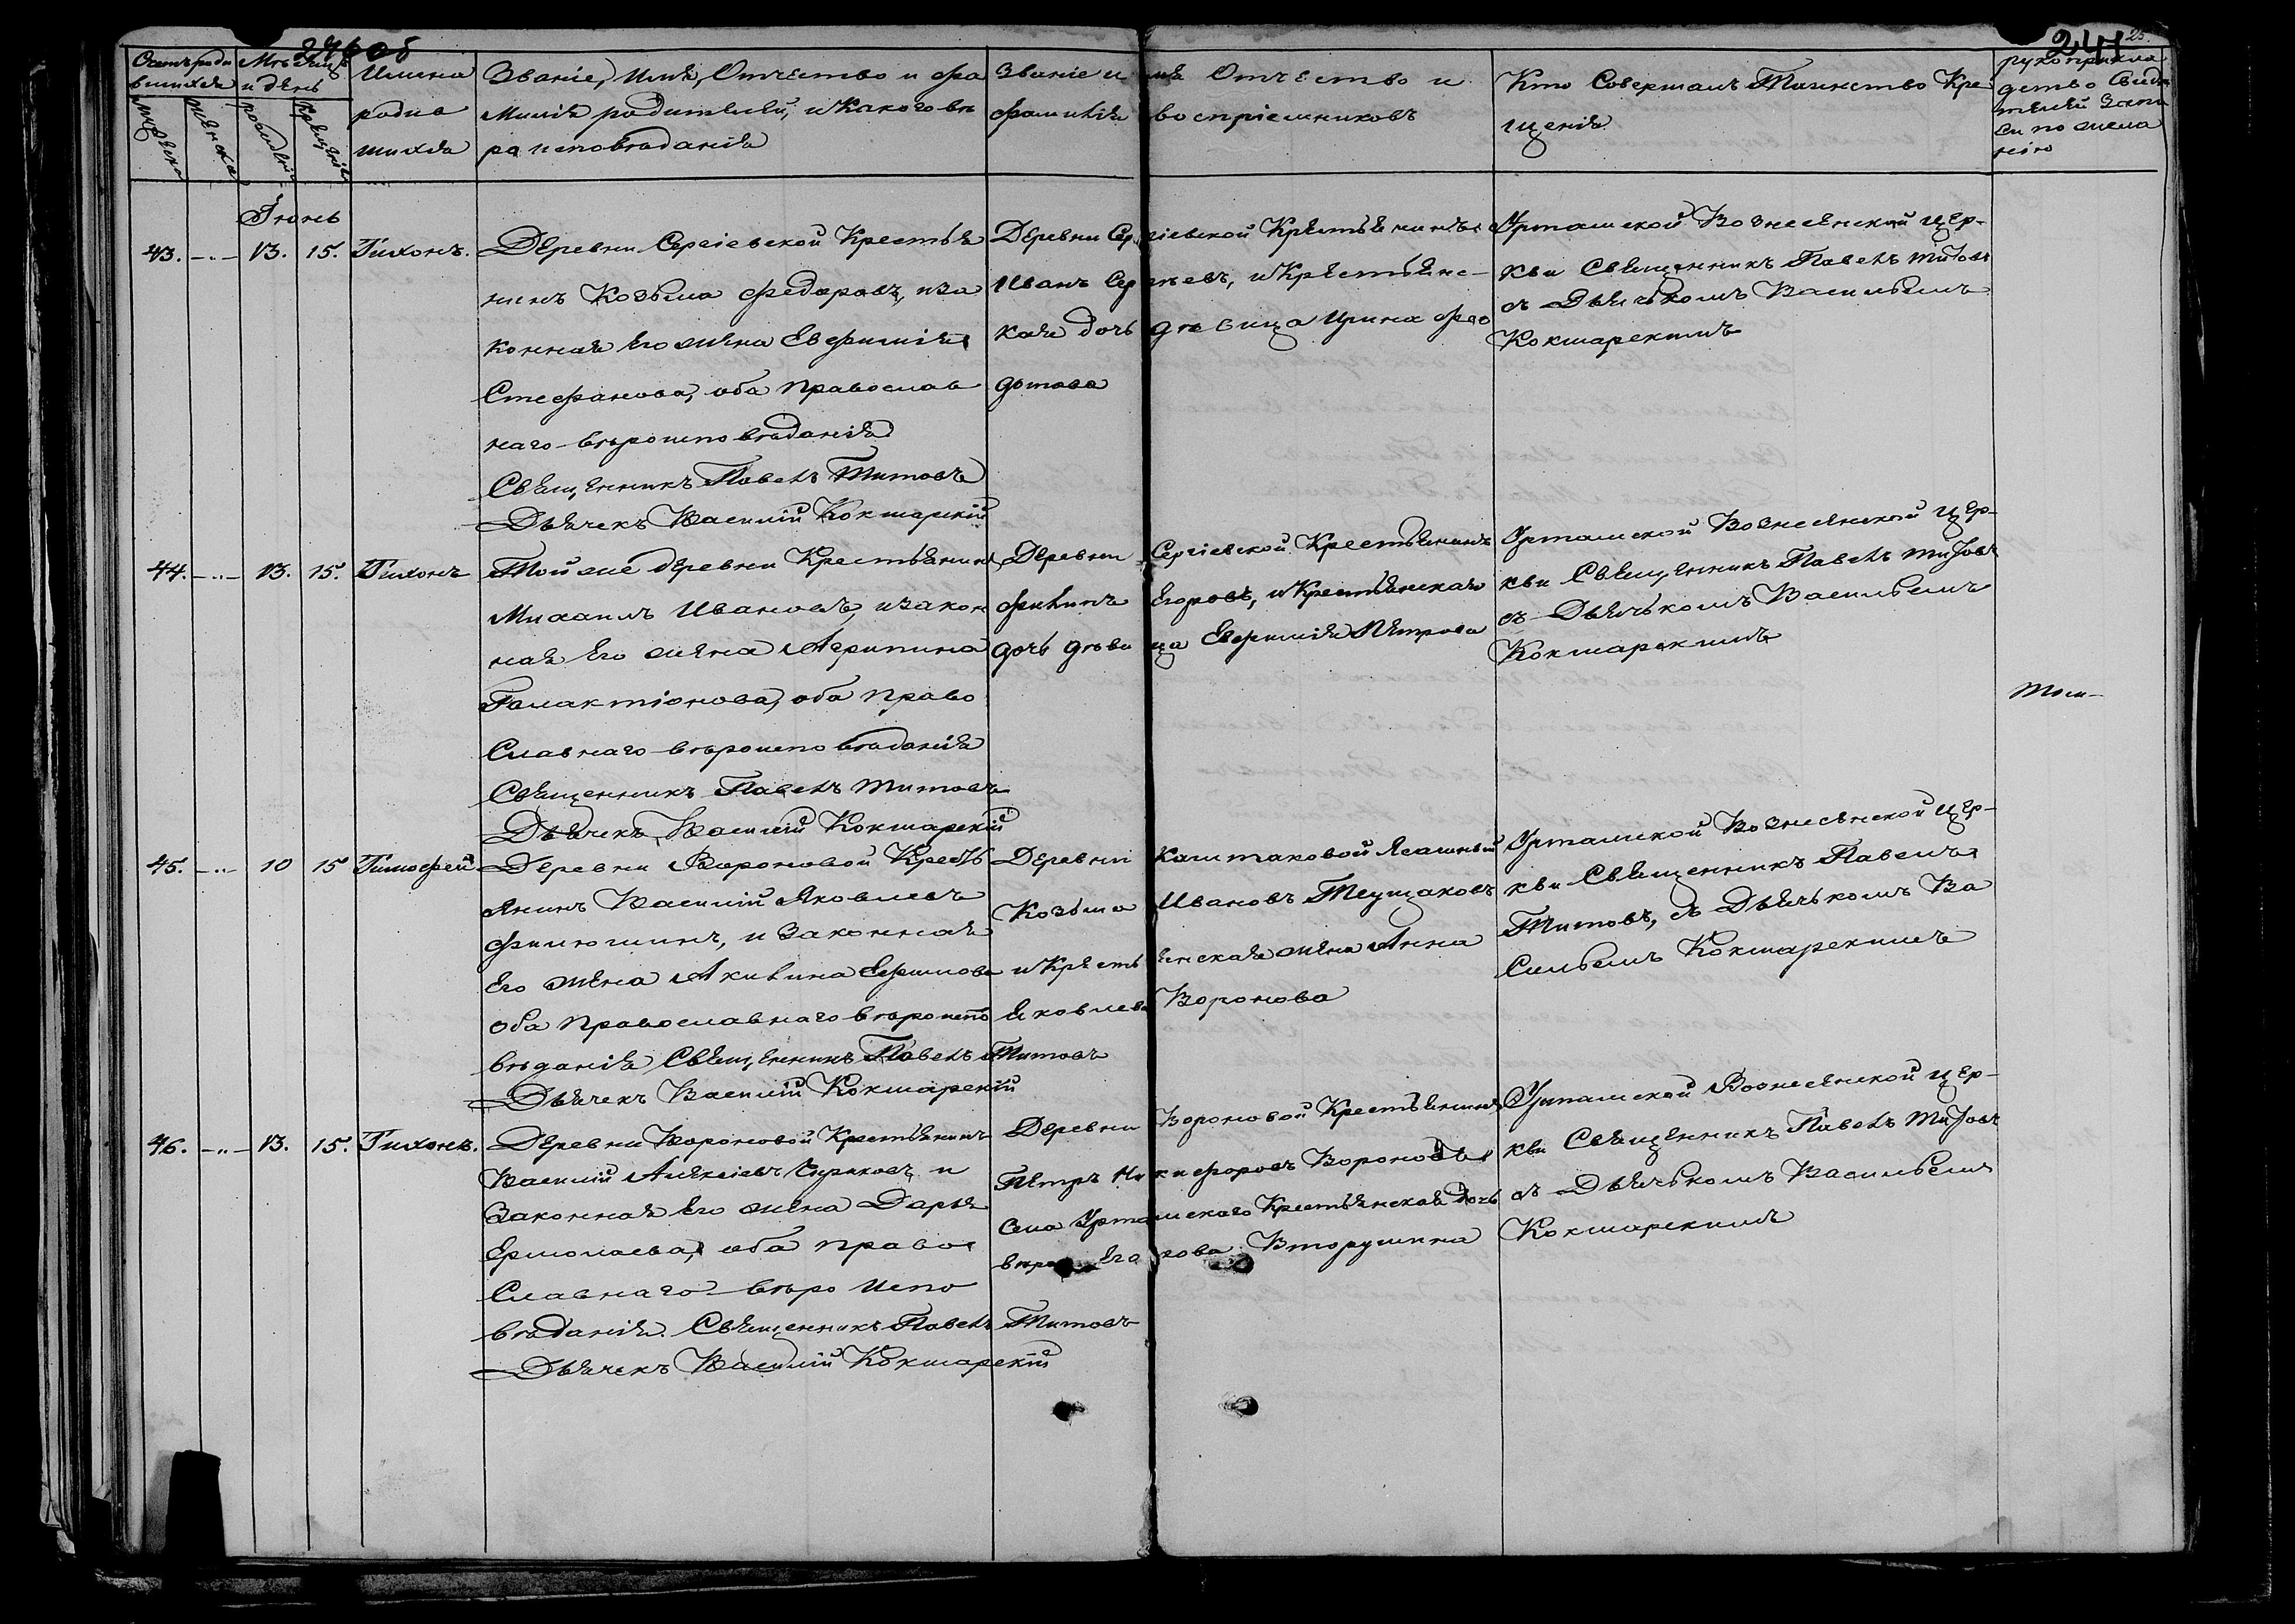 240об
241
25.
Счетъ роди Мѣсяцъ
вшихся и день
Мужеска
Женска
рожденія
Крещенія
Имена
родив
шихся
Званіе, Имя, Отчество и фа
милія родителей, и Какого вѣ
ро исповѣданія
Званіе и имя Отчество и
фамилія воспріемниковъ
Кто Совершалъ Таинство Кре
щенія
рукоприкла
дство Свидѣ
телей запи
си по жела
нію
Іюнь
43. -"- 13. 15. Тихонъ.
Деревни Сергіевской Крестья
нинъ Козьма Федоровъ, и за
конная его жена Евфимія
Стефанова, оба Православ
наго вѣроисповѣданія
Священникъ Павелъ Титовъ
Дьячекъ Василій Кокшарскій
Деревни Сергіевской Крестьянинъ
Иванъ Сергѣевъ, и Крестьянс-
кая дочь дѣвица Ирина Фео
дотова
Урташской Вознесенской цер-
кви Священникъ Павелъ Титовъ
съ Дьячькомъ Васильемъ
Кокшарскимъ
44. -"- 13. 15. Тихонъ
Той же деревни Крестьянинъ
Михаилъ Ивановъ, и закон
ная его жена Агрипина
Галактіонова, оба Право
Славнаго вѣроисповѣданія
Священникъ Павелъ Титовъ
Дьячекъ Василій Кокшарскій
Деревни Сергіевской Крестьянинъ
Филипъ Егоровъ, и Крестьянская
дочь дѣвица Евфимія Петрова
Урташской Вознесенской цер-
кви Священникъ Павелъ Титовъ
съ Дьячькомъ Васильемъ
Кокшарскимъ
45. -"- 10 15 Тимофей
Деревни Вороновой Кресть
янинъ Василій Яковлевъ
Филюшинъ, и Законная
его жена Акилина Ефимова
оба Православнаго вѣроиспо
вѣданія Священникъ Павелъ Титовъ
Дьячекъ Василій Кокшарскій
Деревни Каштаковой Ясашный
Козьма Ивановъ Тещаковъ
и Крестьянская жена Анна
Яковлева Воронова
Урташской Вознесенской цер-
кви Священникъ Павелъ
Титовъ, съ Дьячькомъ Ва
сильемъ Кокшарскимъ
46. -"- 13. 15. Тихонъ.
Деревни Вороновой Крестьянинъ
Василій Алексіевъ и
Законная его жена Дарья
Ермолаева, оба Право
Славнаго вѣро испо
вѣданія. Священникъ Павелъ Титовъ
Дьячекъ Василій Кокшарскій
Деревни Вороновой Крестьянинъ
Петръ Никифоровъ Вороновъ
села Урташскаго Крестьянская дочь
Егорова Вторушина
Урташской Вознесенской цер-
кви Священникъ Павелъ Титовъ
съ Дьячькомъ Васильемъ
Кокшарскимъ